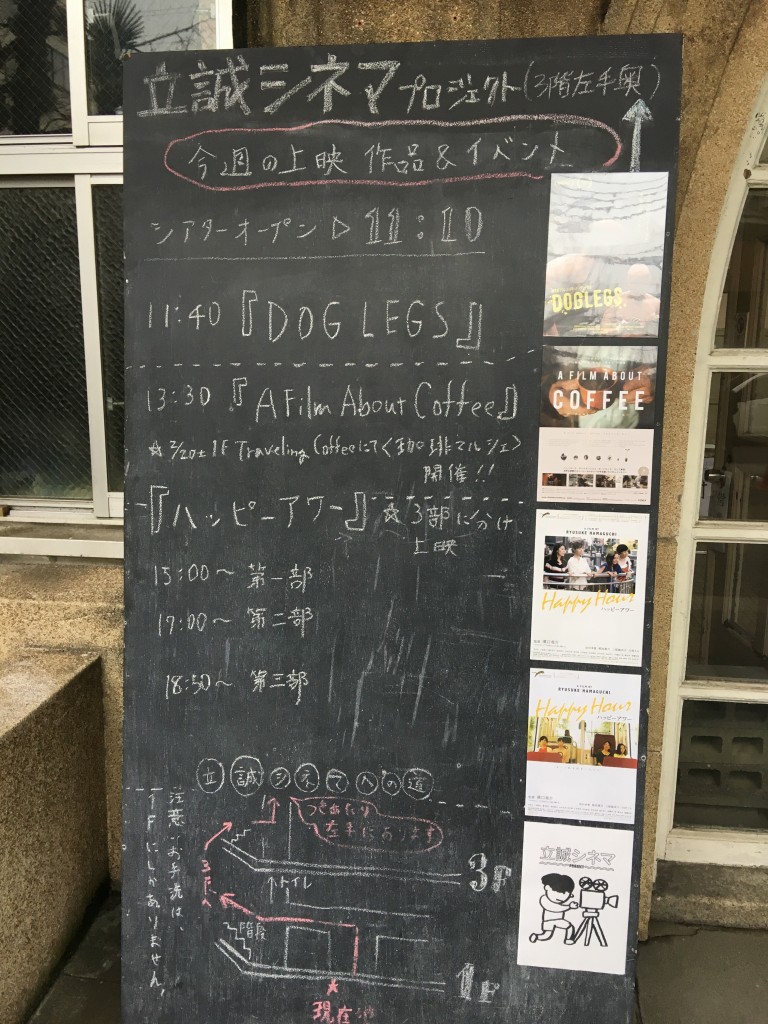 立誠シネマプロジェクト(3階左手奥)
今週の上映 作品&イベント
シアターオープン▷11:10
11:40『DOG LEGS』
13:30『A Film About Coffee』
☆2/20土 1F Traveling Coffeeにて〈珈琲マルシェ〉
開催!!
『ハッピーアワー』☆3部に分け、
上映
15:00〜 第一部
17:00〜 第二部
18:50〜 第三部
立誠シネマへの道
つきあたり
左手にあります
3Fへ
3F
トイレ
階段
1F
現在地
注意 お手洗は、
1Fにしかありません。
DOGLEGS
A FILM ABOUT
COFFEE
A FILM BY
RYUSUKE HAMAGUCHI
Happy Hour
ハッピーアワー
A FILM BY
RYUSUKE HAMAGUCHI
Happy Hour
ハッピーアワー
立誠シネマ
PROJECT